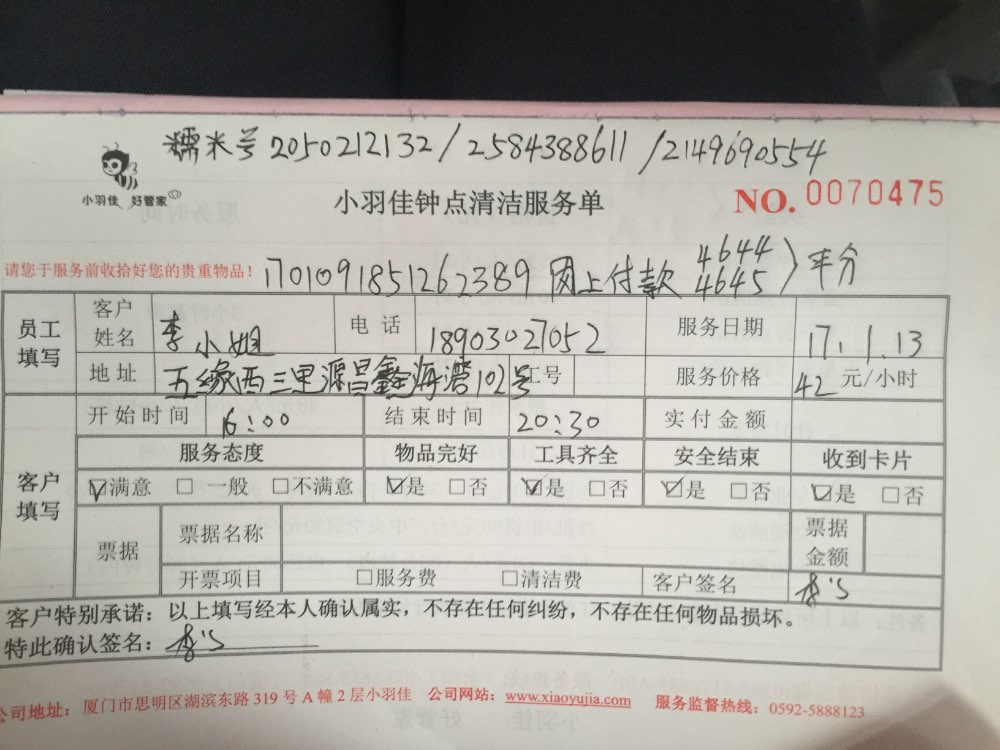 糯米号2050212132/2584388611/2149690554
小羽佳 好管家
小羽佳钟点清洁服务单
NO. 0070475
请您于服务前收拾好您的贵重物品！
1701091851262389 网上付款 4644 4645 〉平分
员工填写 客户姓名 李小姐 电话 18903027052 服务日期 17.1.13
地址 五缘西三里源昌鑫海湾102号 工号 服务价格 42元/小时
客户填写 开始时间 16:00 结束时间 20:30 实付金额
服务态度 物品完好 工具齐全 安全结束 收到卡片
☑满意 □一般 □不满意 ☑是 □否 ☑是 □否 ☑是 □否 ☑是 □否
票据 票据名称 票据金额
开票项目 □服务费 □清洁费 客户签名
客户特别承诺：以上填写经本人确认属实，不存在任何纠纷，不存在任何物品损坏。
特此确认签名：
公司地址：厦门市思明区湖滨东路319号A幢2层小羽佳 公司网站：www.xiaoyujia.com 服务监督热线：0592-5888123